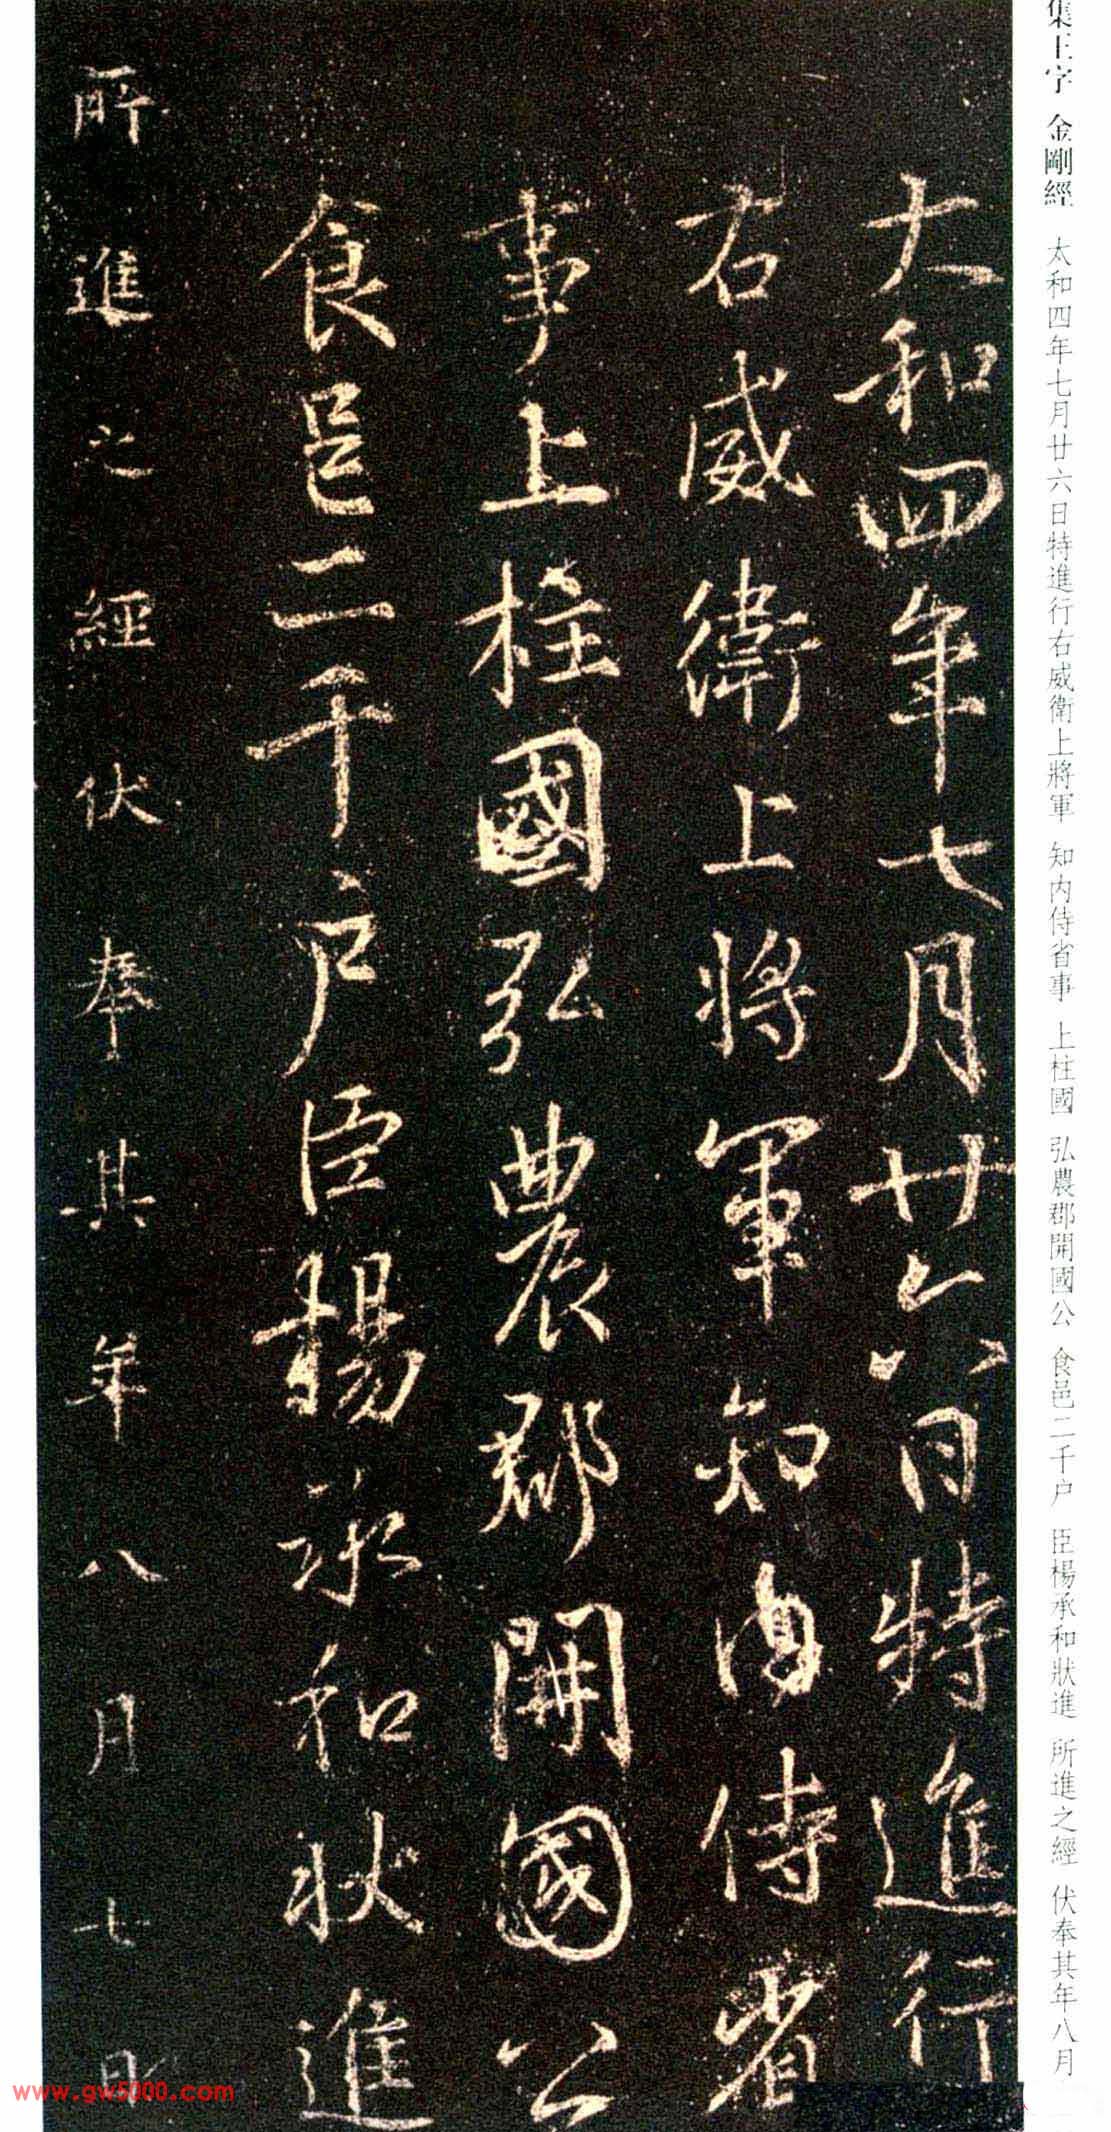 集王字 金剛經 太和四年七月廿六日特進行右威衛上將軍 知内侍省事 上柱國 弘農郡開國公 食邑二千户 臣楊承和狀進 所進之經 伏奉其年八月
大和四年七月廿六日特進行
右威衛上將軍知内侍省
事上柱國弘農郡開國公
食邑二千户臣楊承和狀進
所進之經伏奉其年八月七日
www.gw5000.com